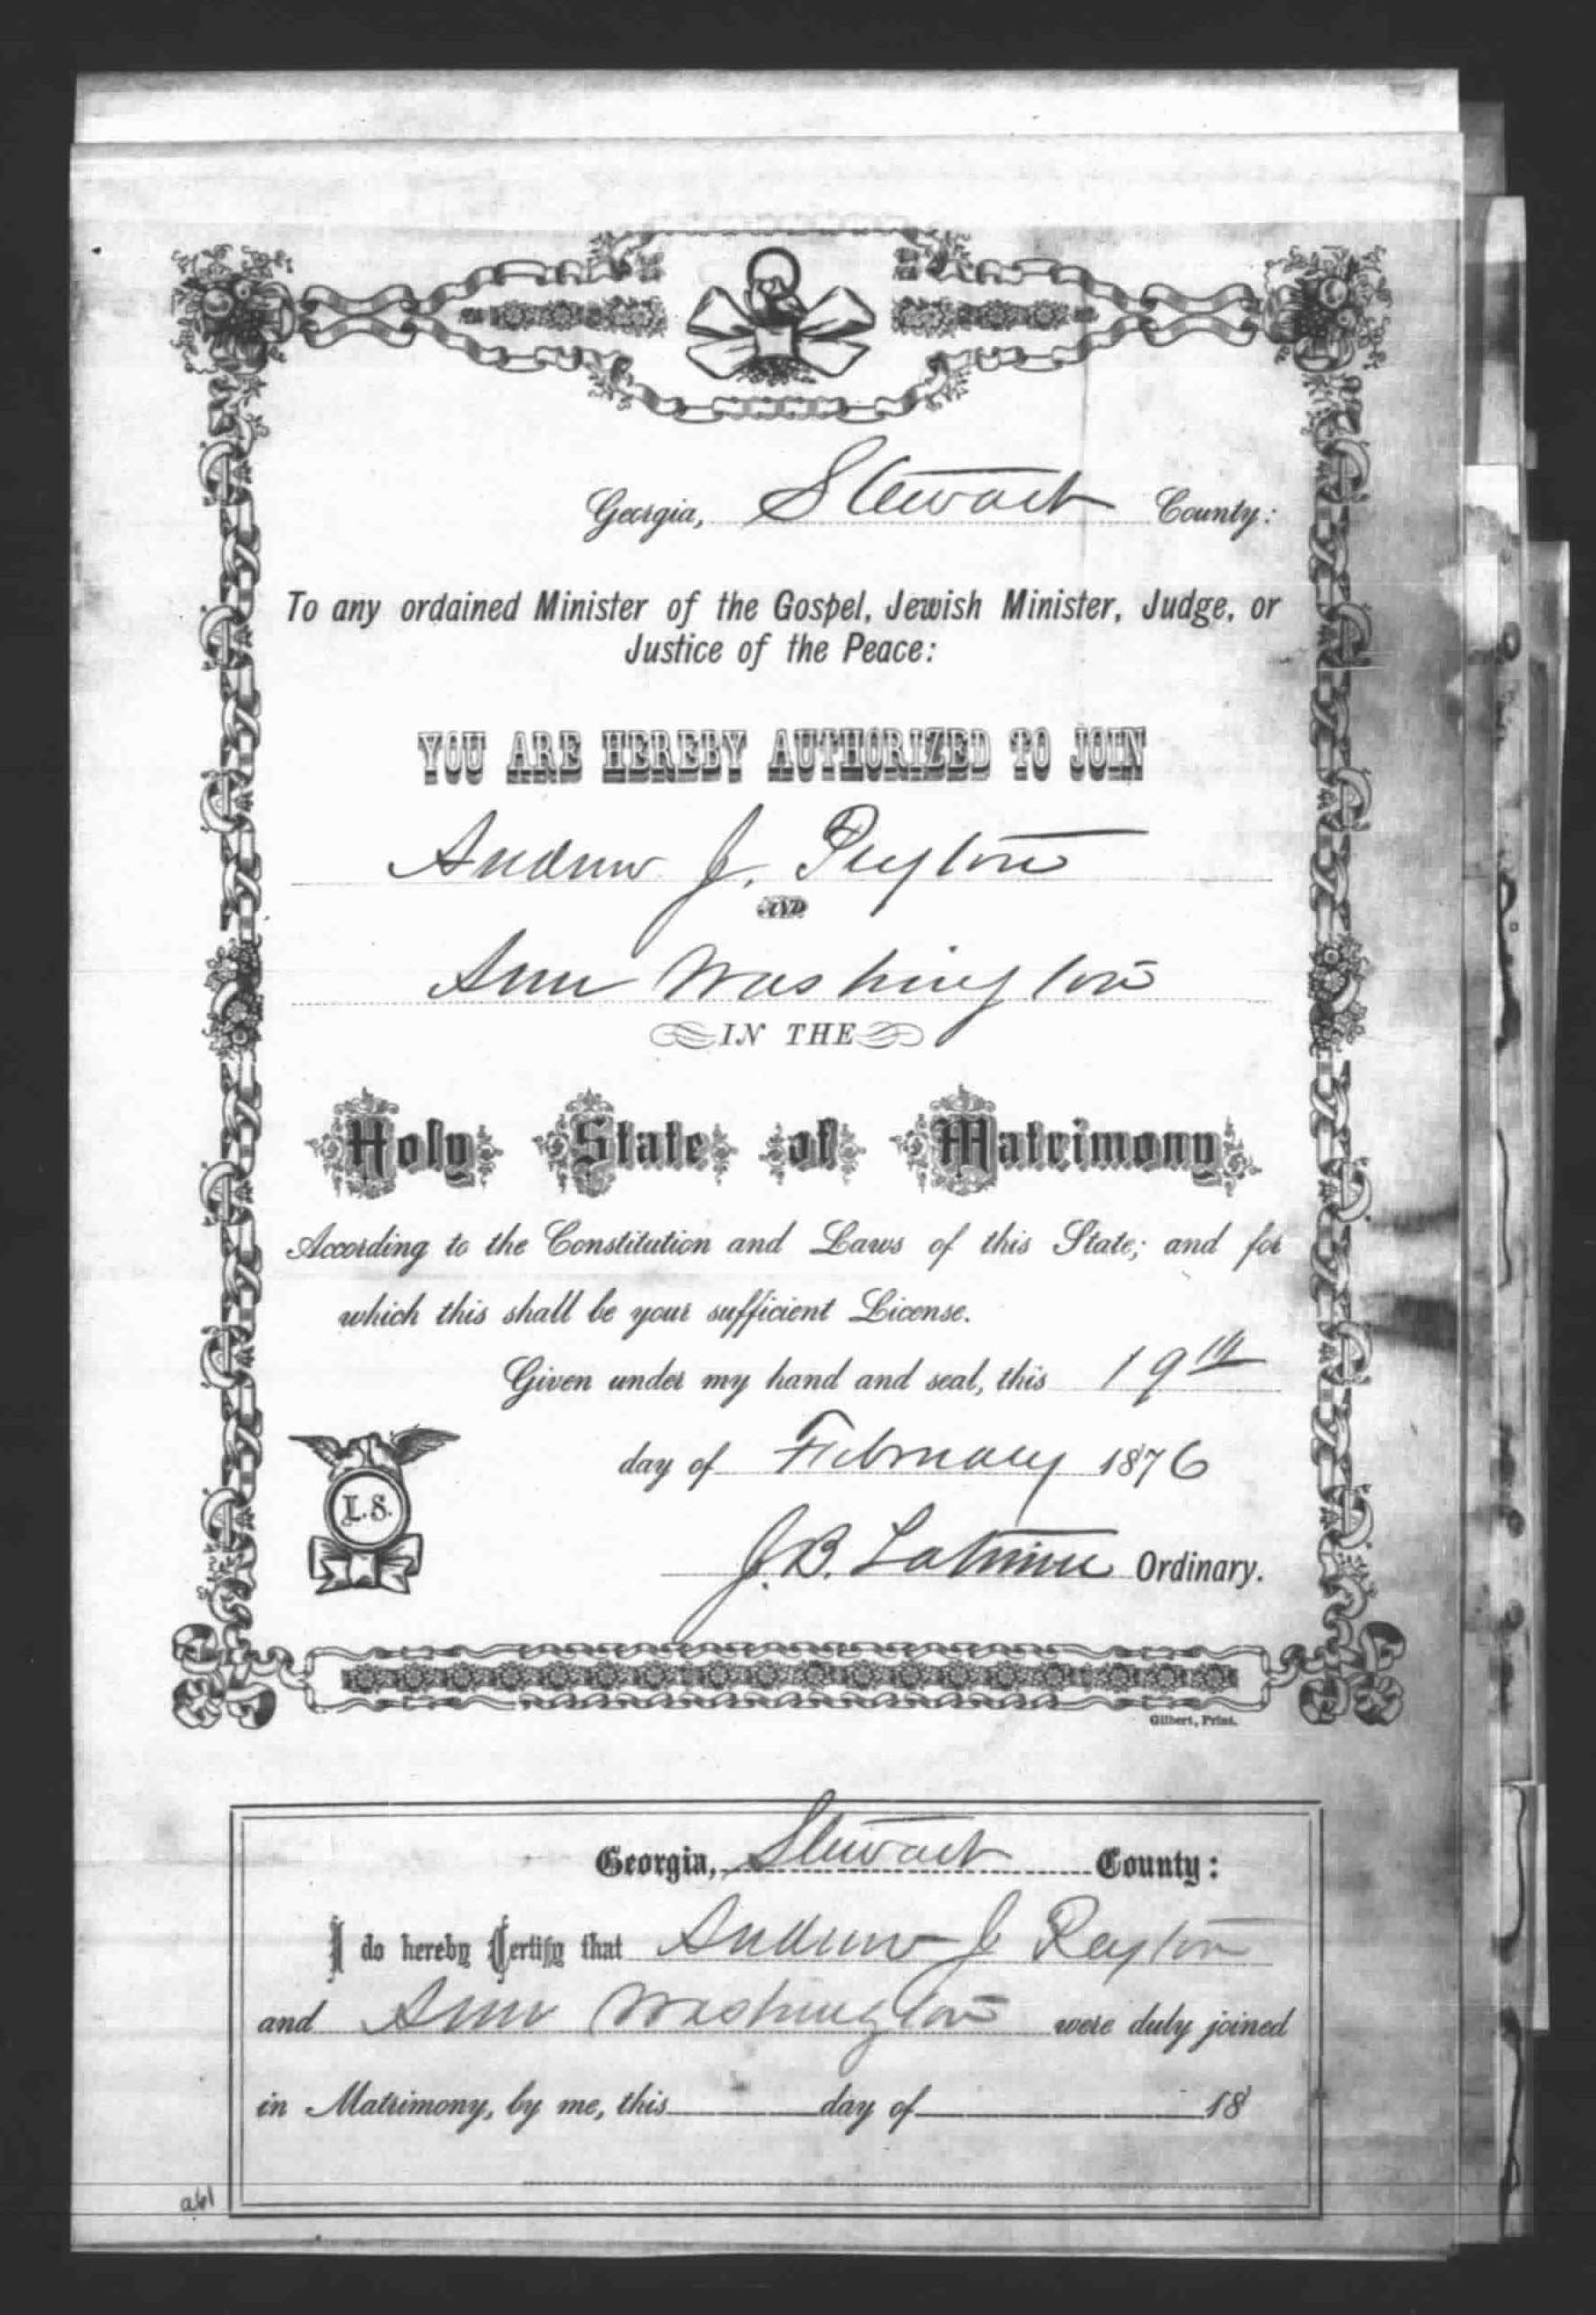 Georgia, Stewart County:
To any ordained Minister of the Gospel, Jewish Minister, Judge, or
Justice of the Peace:
YOU ARE HEREBY AUTHORIZED TO JOIN
Andrew J. Peyton
AND
Ann Washington
IN THE
Holy State of Matrimony
According to the Constitution and Laws of this State; and for
which this shall be your sufficient License.
Given under my hand and seal, this 19th
day of February 1876
L.S.
J. B. Latimer Ordinary.
Gilbert, Print.
Georgia, Stewart County:
I do hereby Certify that Andrew J Peyton
and Ann Washington were duly joined
in Matrimony, by me, this day of 18